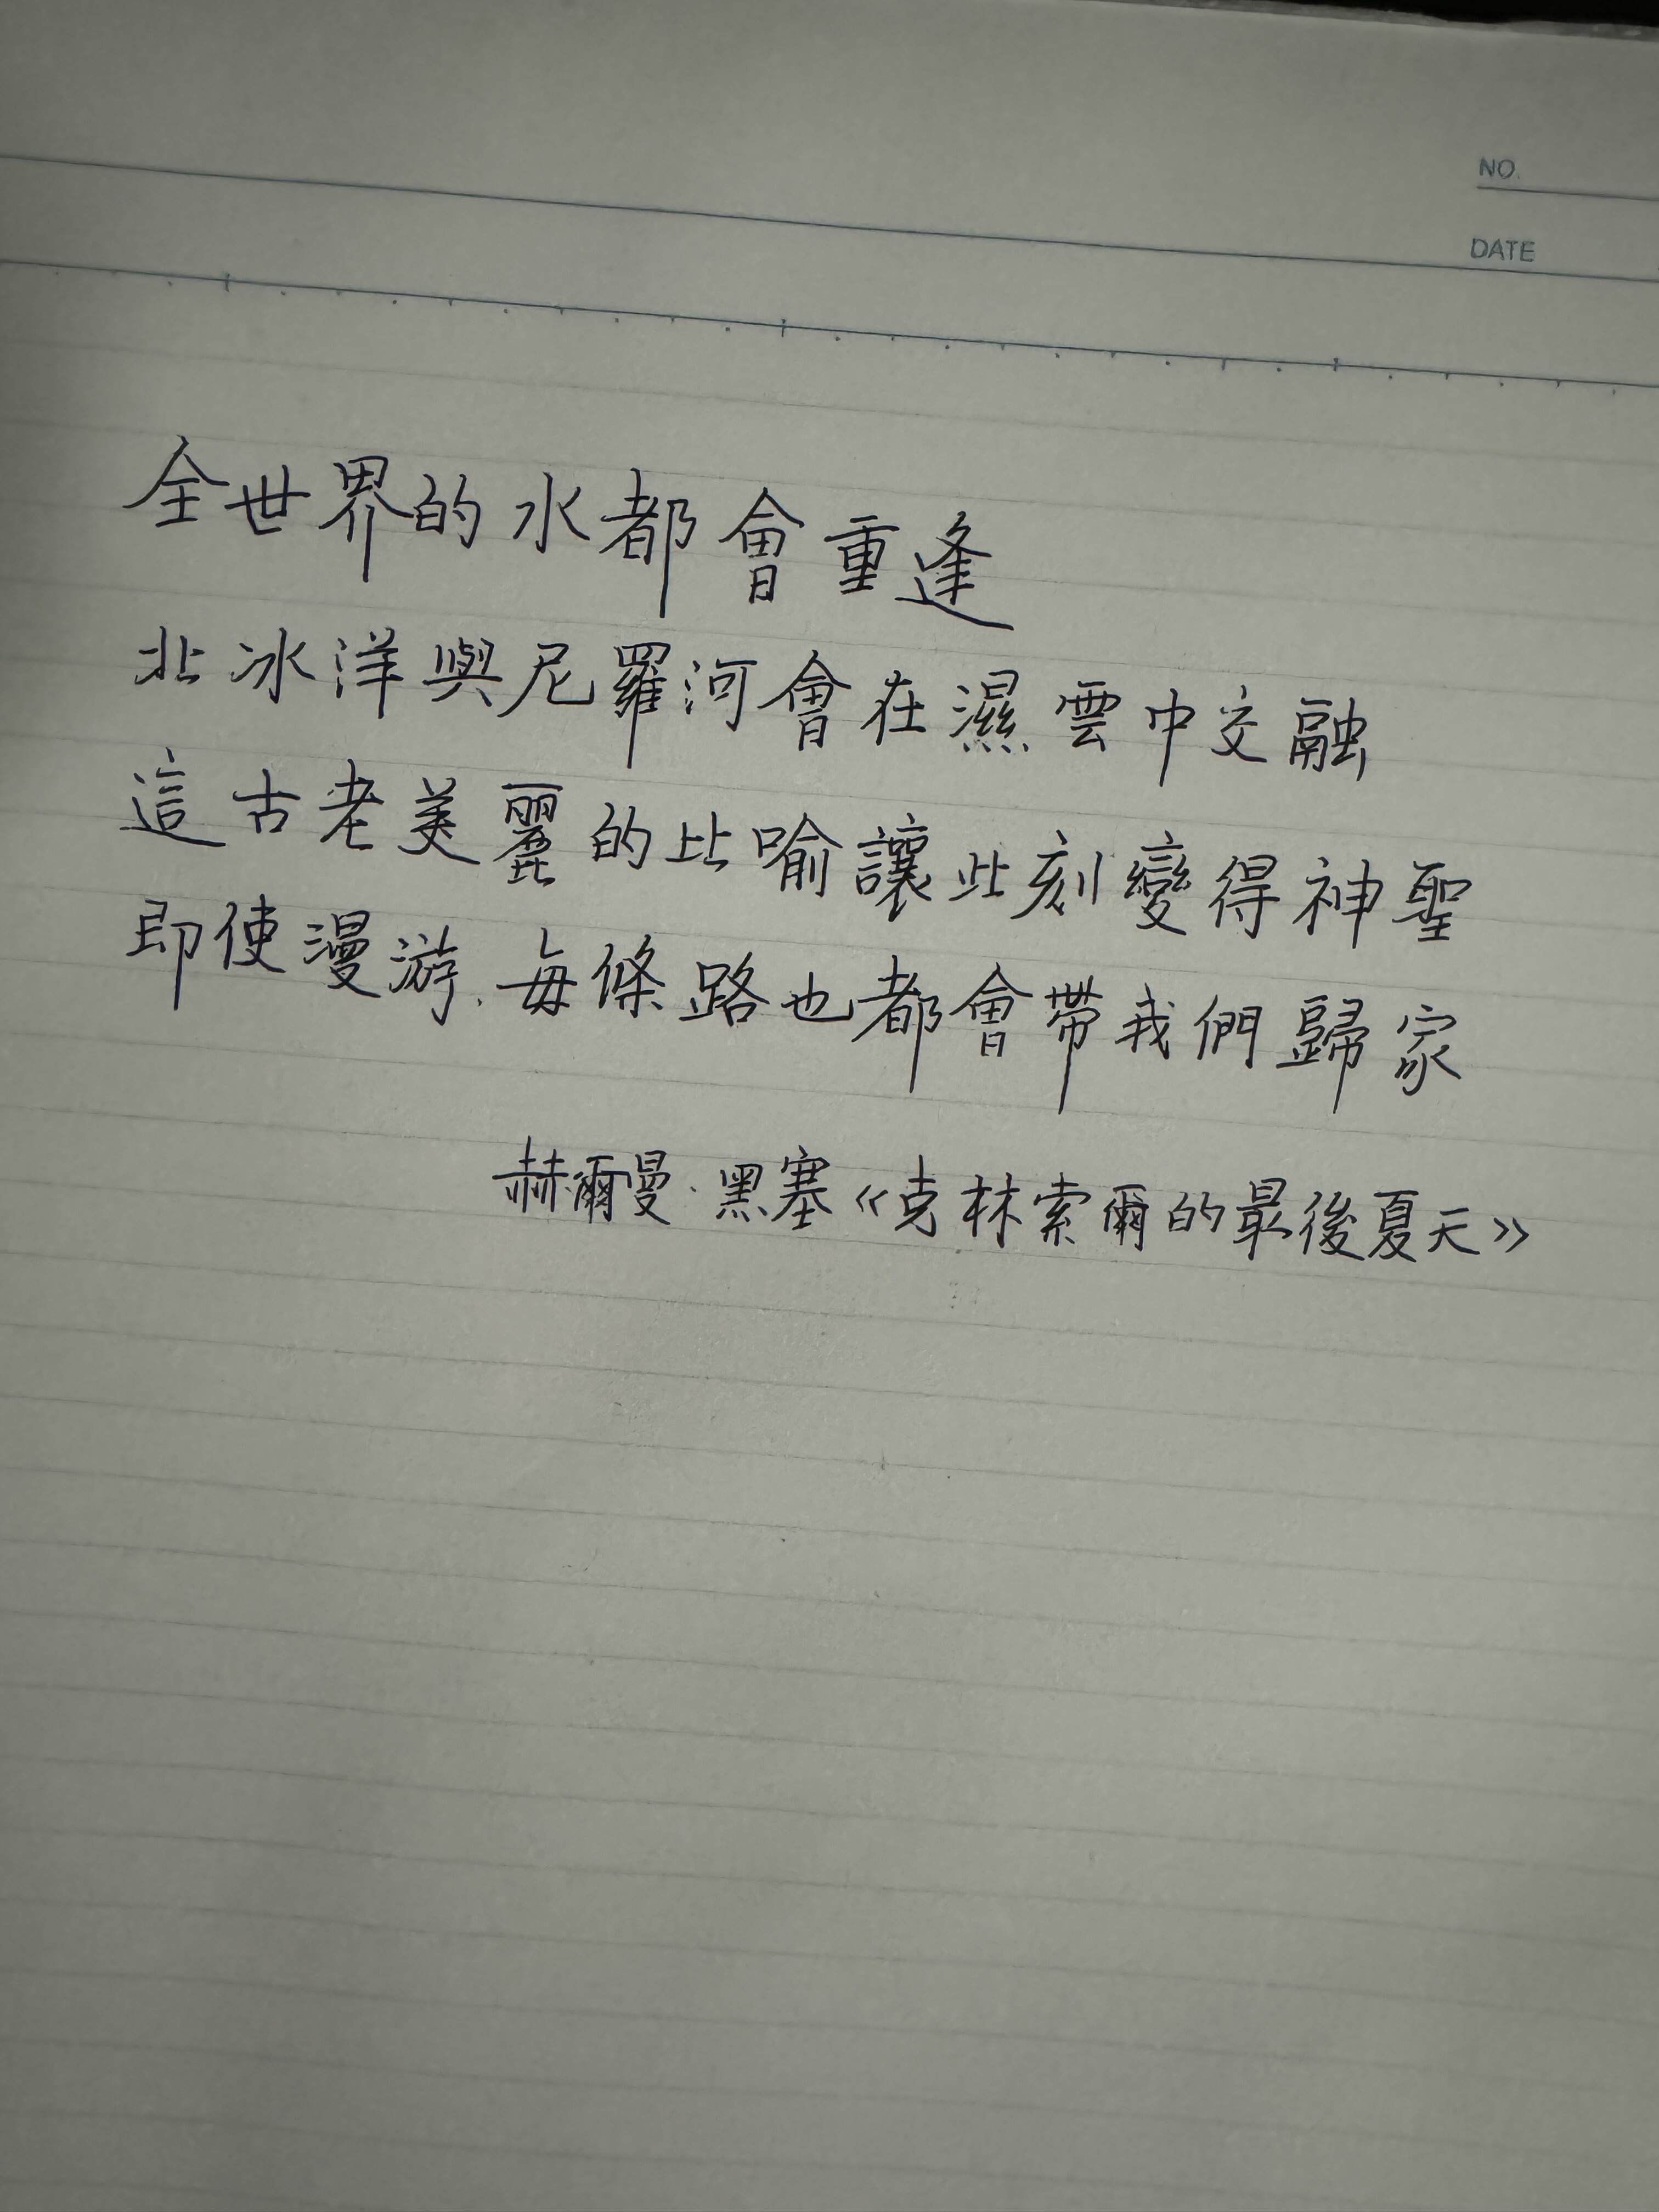 NO.
DATE
全世界的水都會重逢
北冰洋與尼羅河會在濕雲中交融
這古老美麗的比喻讓此刻變得神聖
即使漫游.每條路也都會帶我們歸家
赫爾曼·黑塞《克林索爾的最後夏天》